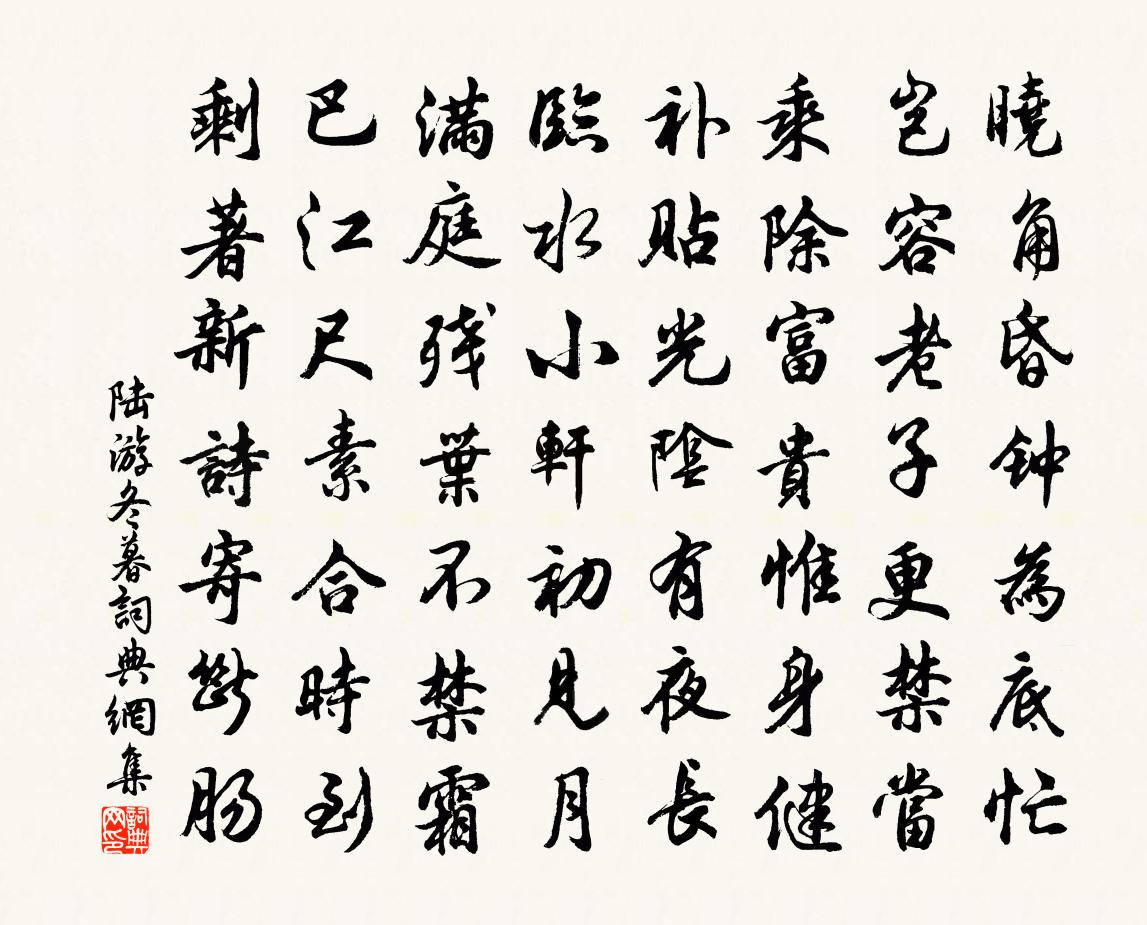 曉角昏钟為底忙
岂容老子更禁當
乘除富貴惟身健
补贴光陰有夜長
臨水小軒初見月
滿庭残葉不禁霜
巴江尺素合時到
剩著新詩寄斷肠
陆游冬暮詞典網集
詞典网印